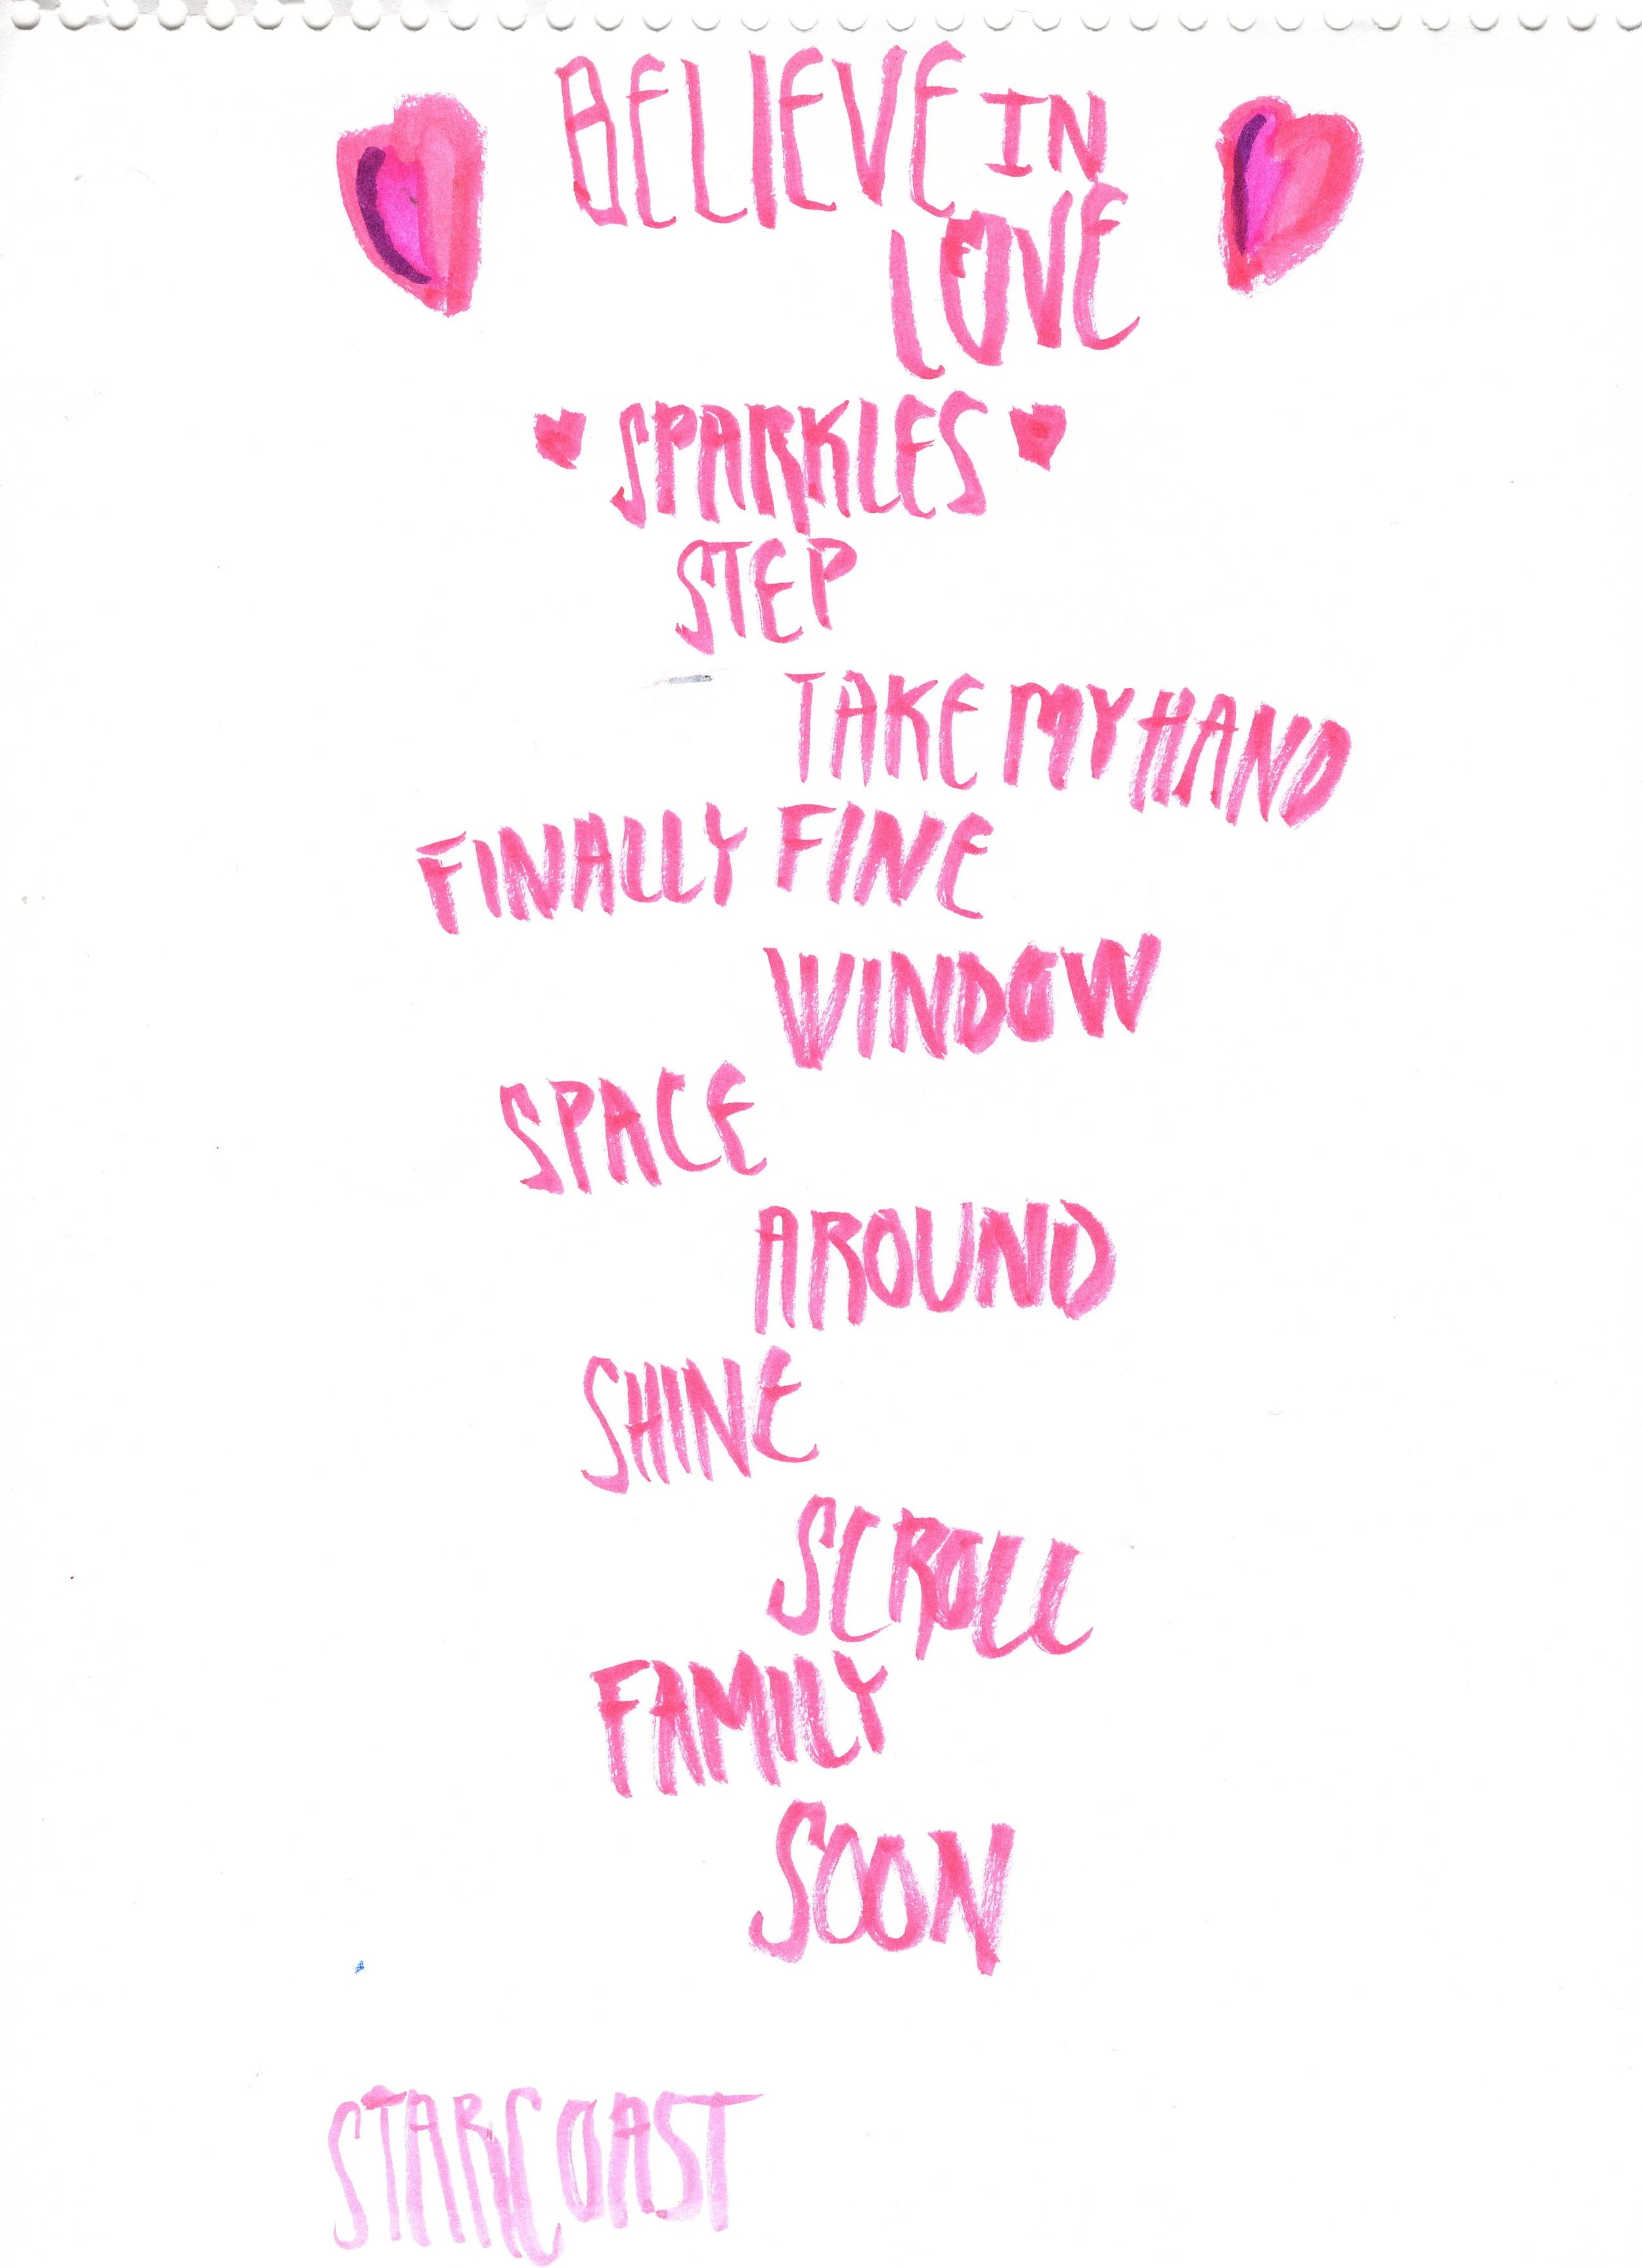 BELIEVE IN
LOVE
SPARKLES
STEP
TAKE MY HAND
FINALLY FINE
WINDOW
SPACE
AROUND
SHINE
SCROLL
FAMILY
SOON
STARCOAST